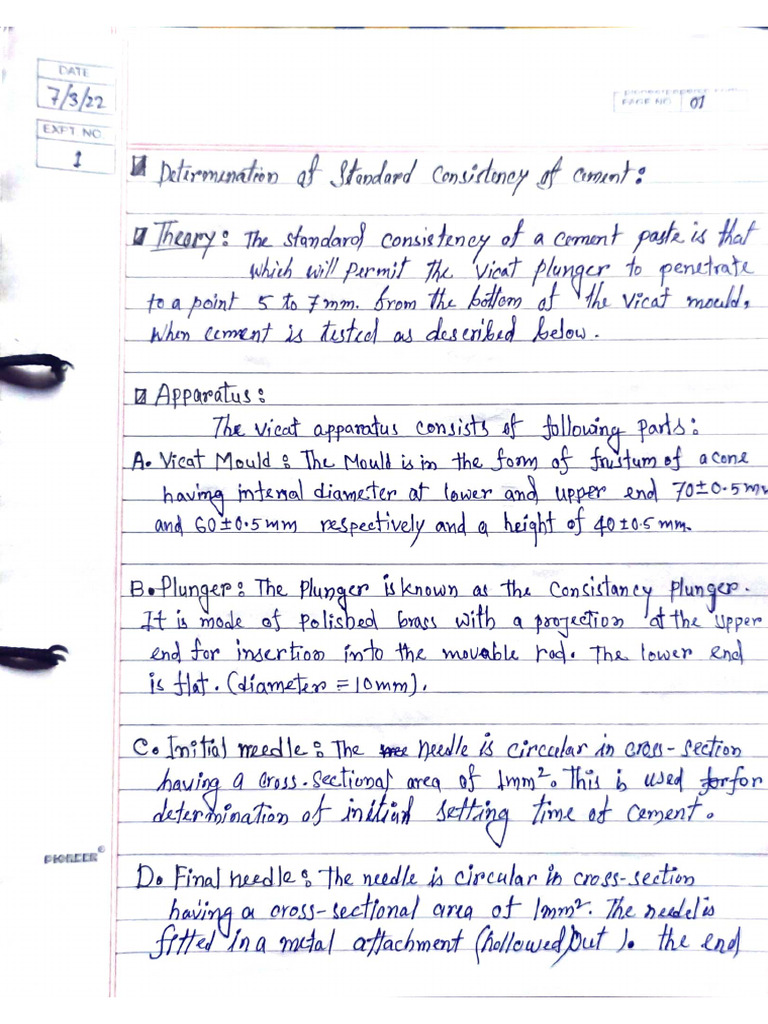 DATE
7/3/22
EXPT NO.
1
PAGE NO. 01
Determination of Standard Consistency of cement:
Theory: The standard consistency of a cement paste is that
which will permit the Vicat plunger to penetrate
to a point 5 to 7mm. from the bottom of the Vicat mould,
when cement is tested as described below.
Apparatus:
The Vicat apparatus consists of following parts:
A. Vicat Mould: The Mould is in the form of frustum of a cone
having internal diameter at lower and upper end 70±0.5mm
and 60±0.5mm respectively and a height of 40±0.5mm.
B. Plunger: The Plunger is known as the Consistancy plunger.
It is mode of polished brass with a projection at the upper
end for insertion into the movable rod. The lower end
is flat. (diameter = 10mm).
C. Initial needle: The needle is circular in cross-section
having a cross-sectional area of 1mm². This is used for
determination of initial setting time of cement.
PIONEER®
D. Final needle: The needle is circular in cross-section
having a cross-sectional area of 1mm². The needel is
fitted in a metal attachment (hollowed out). the end